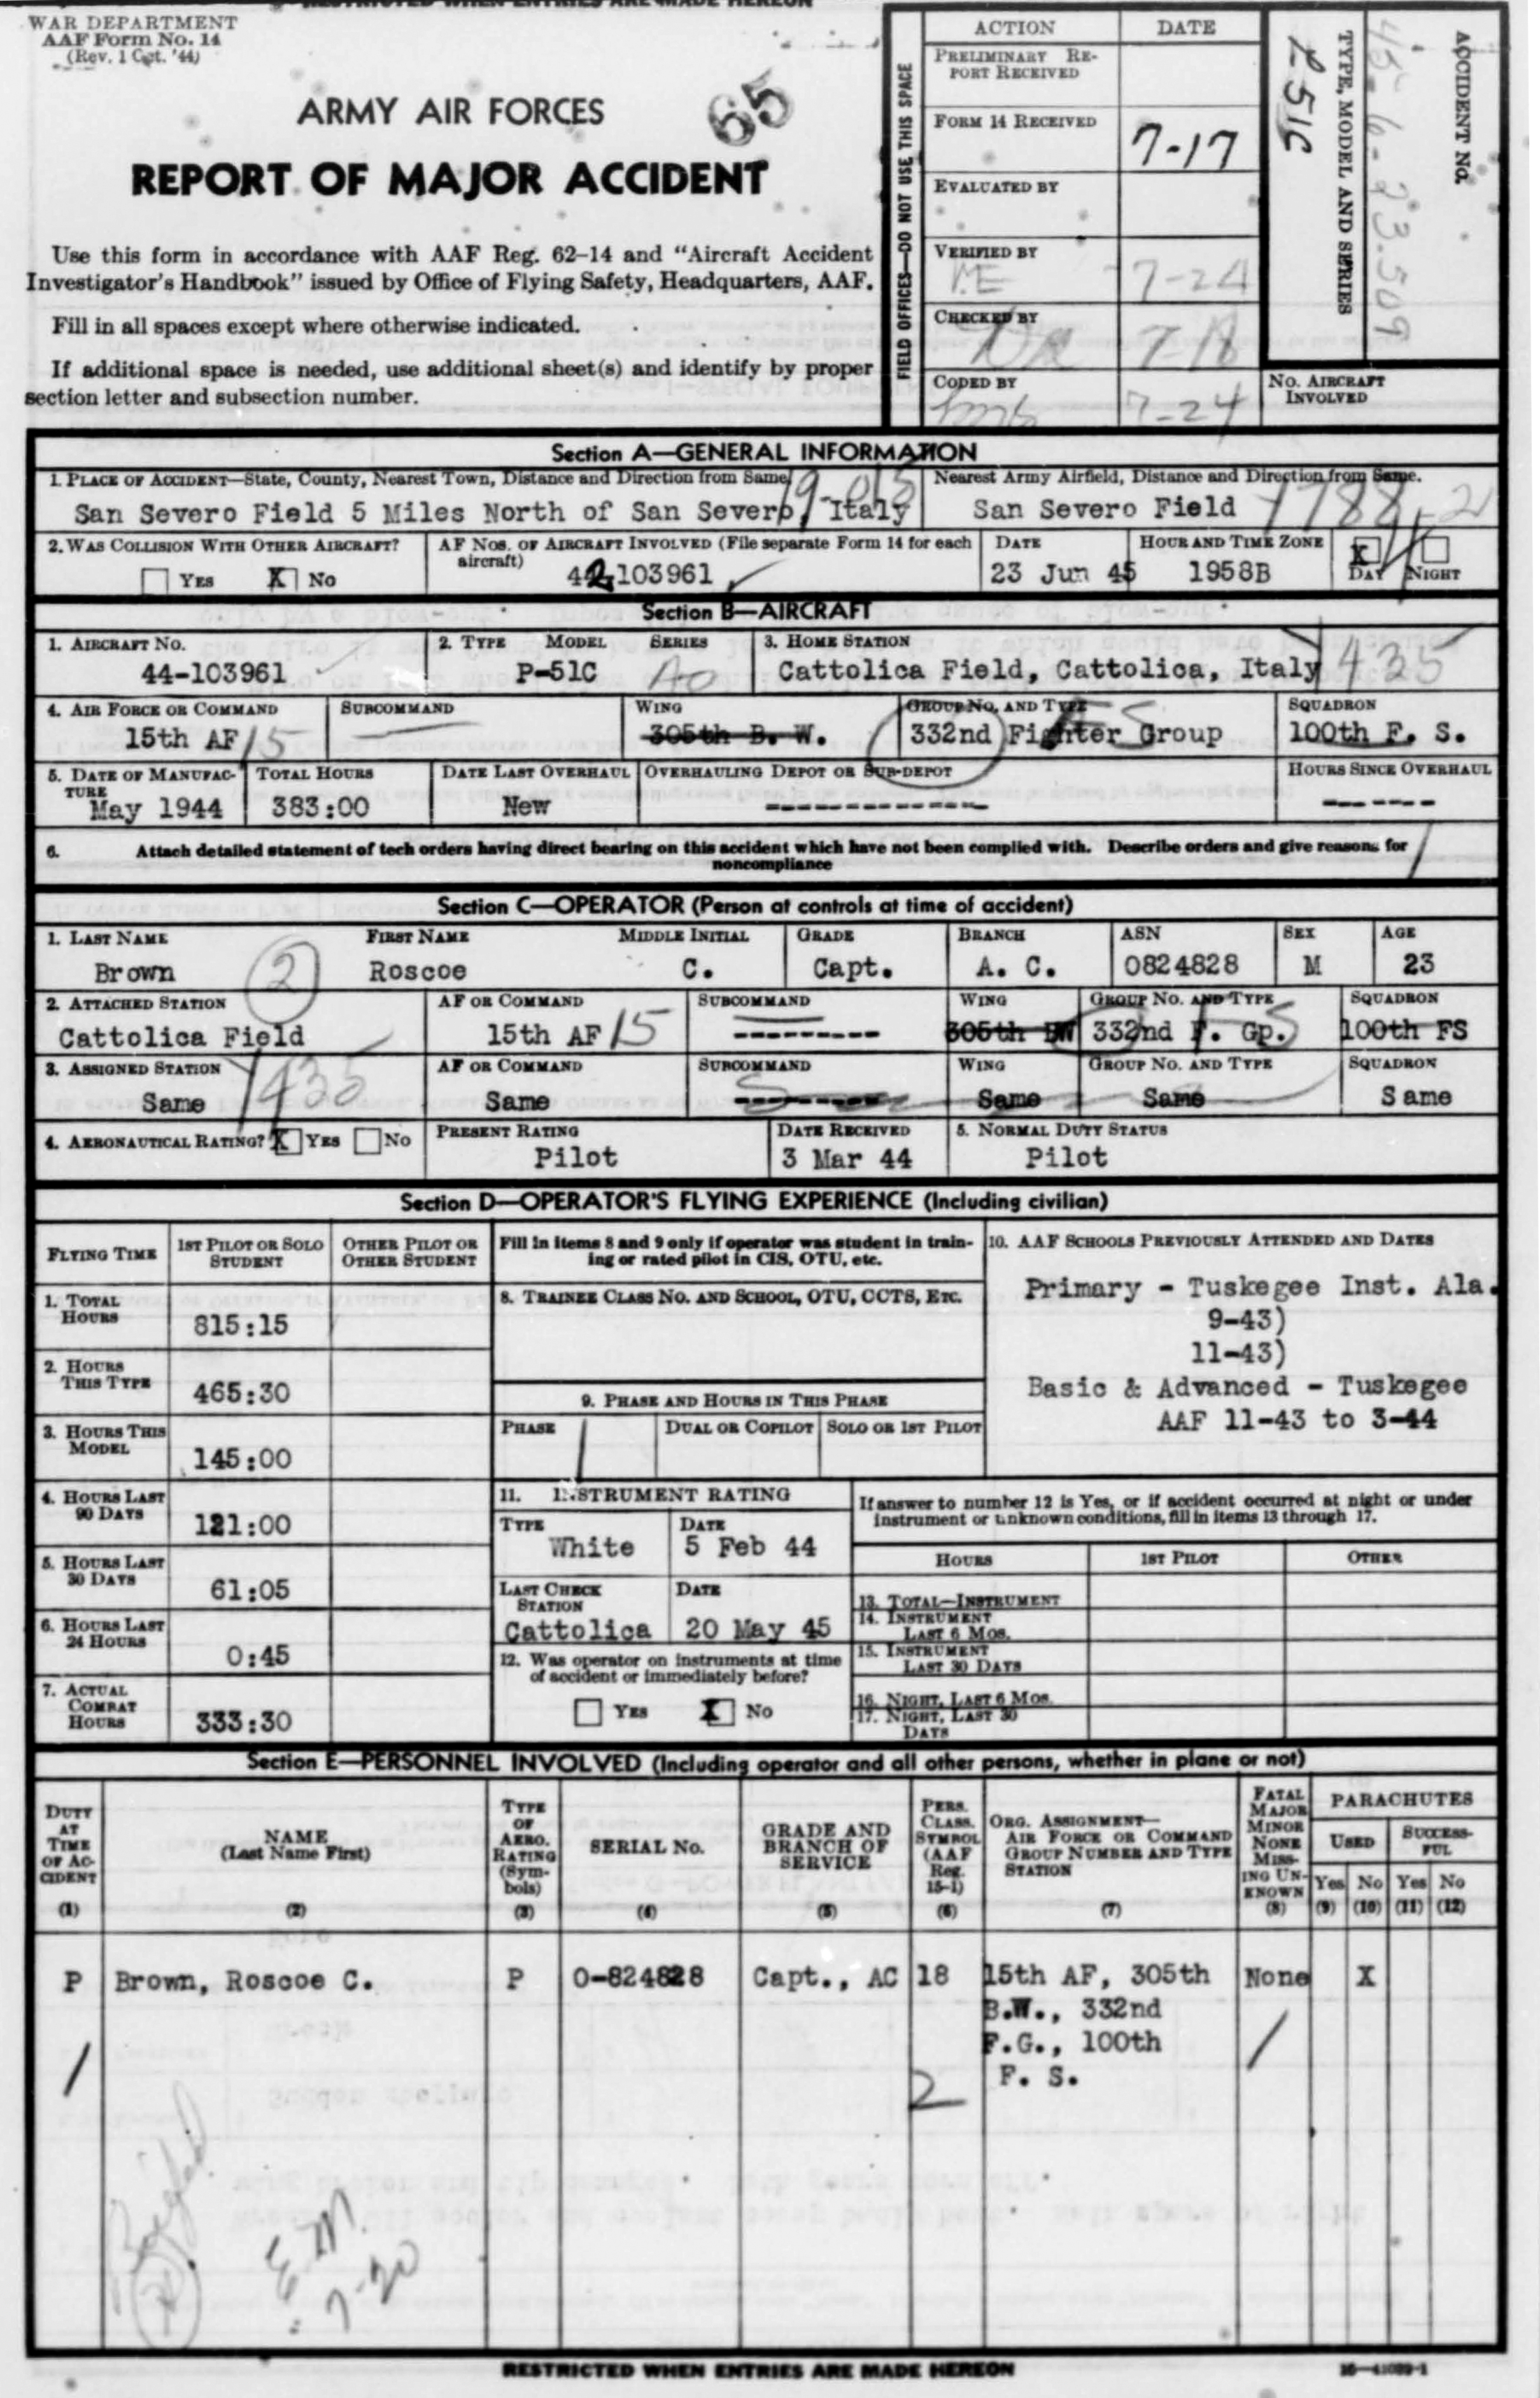 RESTRICTED WHEN ENTRIES ARE MADE HEREON
WAR DEPARTMENT
AAF Form No. 14
(Rev. 1 Oct. '44)
65
ARMY AIR FORCES
REPORT OF MAJOR ACCIDENT
Use this form in accordance with AAF Reg. 62-14 and "Aircraft Accident
Investigator's Handbook" issued by Office of Flying Safety, Headquarters, AAF.
Fill in all spaces except where otherwise indicated.
If additional space is needed, use additional sheet(s) and identify by proper
section letter and subsection number.
FIELD OFFICES—DO NOT USE THIS SPACE
ACTION DATE
PRELIMINARY RE-
PORT RECEIVED
FORM 14 RECEIVED 7-17
EVALUATED BY
VERIFIED BY 7-24
CHECKED BY 7-18
CODED BY 7-24
TYPE, MODEL AND SERIES
P51C
ACCIDENT No.
45-6-23.509
No. AIRCRAFT
INVOLVED
Section A—GENERAL INFORMATION
1. PLACE OF ACCIDENT—State, County, Nearest Town, Distance and Direction from Same
San Severo Field 5 Miles North of San Severo, Italy
Nearest Army Airfield, Distance and Direction from Same.
San Severo Field
2. WAS COLLISION WITH OTHER AIRCRAFT?
YES X NO
AF NOS. OF AIRCRAFT INVOLVED (File separate Form 14 for each
aircraft)
42-103961
DATE
23 Jun 45
HOUR AND TIME ZONE
1958B
X
DAY NIGHT
Section B—AIRCRAFT
1. AIRCRAFT NO.
44-103961
2. TYPE MODEL SERIES
P-51C
3. HOME STATION
Cattolica Field, Cattolica, Italy 1435
4. AIR FORCE OR COMMAND
15th AF 15
SUBCOMMAND
WING
305th B. W.
GROUP NO. AND TYPE
332nd Fighter Group
SQUADRON
100th F. S.
5. DATE OF MANUFAC-
TURE
May 1944
TOTAL HOURS
383:00
DATE LAST OVERHAUL
New
OVERHAULING DEPOT OR SUB-DEPOT
--------------
HOURS SINCE OVERHAUL
-------
6. Attach detailed statement of tech orders having direct bearing on this accident which have not been complied with. Describe orders and give reasons for
noncompliance
Section C—OPERATOR (Person at controls at time of accident)
1. LAST NAME FIRST NAME MIDDLE INITIAL GRADE BRANCH ASN SEX AGE
Brown 2 Roscoe C. Capt. A. C. 0824828 M 23
2. ATTACHED STATION AF OR COMMAND SUBCOMMAND WING GROUP NO. AND TYPE SQUADRON
Cattolica Field 15th AF 15 --------- 305th BW 332nd F. Gp. 100th FS
3. ASSIGNED STATION AF OR COMMAND SUBCOMMAND WING GROUP NO. AND TYPE SQUADRON
Same 1435 Same --------- Same Same Same
4. AERONAUTICAL RATING? X YES NO
PRESENT RATING
Pilot
DATE RECEIVED
3 Mar 44
5. NORMAL DUTY STATUS
Pilot
Section D—OPERATOR'S FLYING EXPERIENCE (Including civilian)
FLYING TIME
1ST PILOT OR SOLO
STUDENT
OTHER PILOT OR
OTHER STUDENT
1. TOTAL
HOURS
815:15
2. HOURS
THIS TYPE
465:30
3. HOURS THIS
MODEL
145:00
4. HOURS LAST
90 DAYS
121:00
5. HOURS LAST
30 DAYS
61:05
6. HOURS LAST
24 HOURS
0:45
7. ACTUAL
COMBAT
HOURS
333:30
Fill in items 8 and 9 only if operator was student in train-
ing or rated pilot in CIS, OTU, etc.
8. TRAINEE CLASS NO. AND SCHOOL, OTU, CCTS, ETC.
9. PHASE AND HOURS IN THIS PHASE
PHASE DUAL OR COPILOT SOLO OR 1ST PILOT
10. AAF SCHOOLS PREVIOUSLY ATTENDED AND DATES
Primary - Tuskegee Inst. Ala.
9-43)
11-43)
Basic & Advanced - Tuskegee
AAF 11-43 to 3-44
11. INSTRUMENT RATING
TYPE DATE
White 5 Feb 44
LAST CHECK
STATION
DATE
Cattolica 20 May 45
12. Was operator on instruments at time
of accident or immediately before?
YES X NO
If answer to number 12 is Yes, or if accident occurred at night or under
instrument or unknown conditions, fill in items 13 through 17.
HOURS 1ST PILOT OTHER
13. TOTAL—INSTRUMENT
14. INSTRUMENT
LAST 6 MOS.
15. INSTRUMENT
LAST 30 DAYS
16. NIGHT, LAST 6 MOS.
17. NIGHT, LAST 30
DAYS
Section E—PERSONNEL INVOLVED (Including operator and all other persons, whether in plane or not)
DUTY
AT
TIME
OF AC-
CIDENT
(1)
NAME
(Last Name First)
(2)
TYPE
OF
AERO.
RATING
(Sym-
bols)
(3)
SERIAL No.
(4)
GRADE AND
BRANCH OF
SERVICE
(5)
PERS.
CLASS.
SYMBOL
(AAF
Reg.
15-1)
(6)
ORG. ASSIGNMENT—
AIR FORCE OR COMMAND
GROUP NUMBER AND TYPE
STATION
(7)
FATAL
MAJOR
MINOR
NONE
MISS-
ING UN-
KNOWN
(8)
PARACHUTES
USED
SUCCESS-
FUL
Yes No Yes No
(9) (10) (11) (12)
P Brown, Roscoe C. P O-824828 Capt., AC 18 15th AF, 305th None X
B.W., 332nd
F.G., 100th
F. S.
2
E M
7-20
RESTRICTED WHEN ENTRIES ARE MADE HEREON